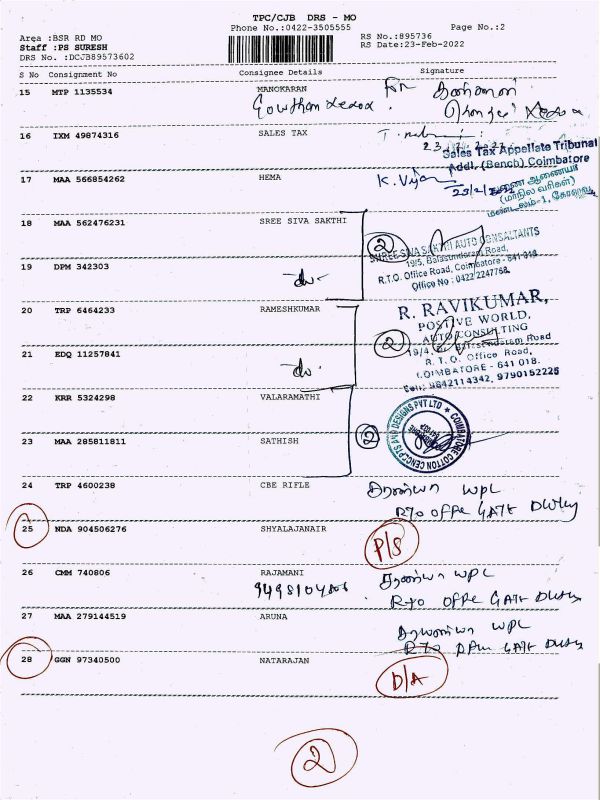 TPC/CJB DRS - MO
Phone No.:0422-3505555
Page No.:2
Area :BSR RD MO
Staff :PS SURESH
DRS No. :DCJB89573602
RS No.:895736
RS Date:23-Feb-2022
S No Consignment No Consignee Details Signature
15 MTP 1135534 MANOKARAN
For
16 IXM 49874316 SALES TAX
Sales Tax Appellate Tribunal
Addl. (Bench) Coimbatore
17 MAA 566854262 HEMA
K. Vijay
(மாநில வரிகள்)
18 MAA 562476231 SREE SIVA SAKTHI
2
SHREE SIVA SAKTHI AUTO CONSULTANTS
19/5, Balasundaram Road,
R.T.O. Office Road, Coimbatore - 641 018.
Office No : 0422 2247768.
19 DPM 342303
-do-
20 TRP 6464233 RAMESHKUMAR
R. RAVIKUMAR,
POSITIVE WORLD,
AUTO CONSULTING
2
R. T. O. Office Road,
COIMBATORE - 641 018.
Cell: 9842114342, 9790152225
21 EDQ 11257841
-do-
22 KRR 5324298 VALARAMATHI
COIMBATORE COTTON CENCEPTS AND DESIGNS PVT LTD
2
23 MAA 285811811 SATHISH
24 TRP 4600238 CBE RIFLE
WPC
RTO Offie GATE Duty
25 NDA 904506276 SHYALAJANAIR
P/S
26 CMM 740806 RAJAMANI
WPC
RTO Offie GATE Duty
27 MAA 279144519 ARUNA
WPC
RTO GATE Duty
28 GGN 97340500 NATARAJAN
D/A
2